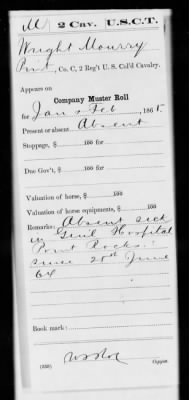 M | 2 Cav. | U.S.C.T.
Wright Mourry
Pvt, Co. C, 2 Reg't U. S. Col'd Cavalry.
Appears on
Company Muster Roll
for Jan & Feb, 1865
Present or absent Absent
Stoppage, $ 100 for
Due Gov't, $ 100 for
Valuation of horse, $ 100
Valuation of horse equipments, $ 100
Remarks: Absent sick
in Genl Hospital
Point Rocks
since 20th June
64
Book mark:
(358)
Copyist.